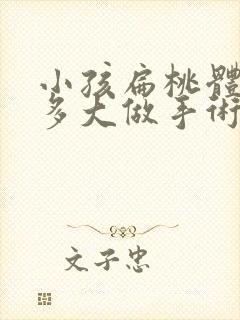 小孩扁桃體
多大做手術
文子忠